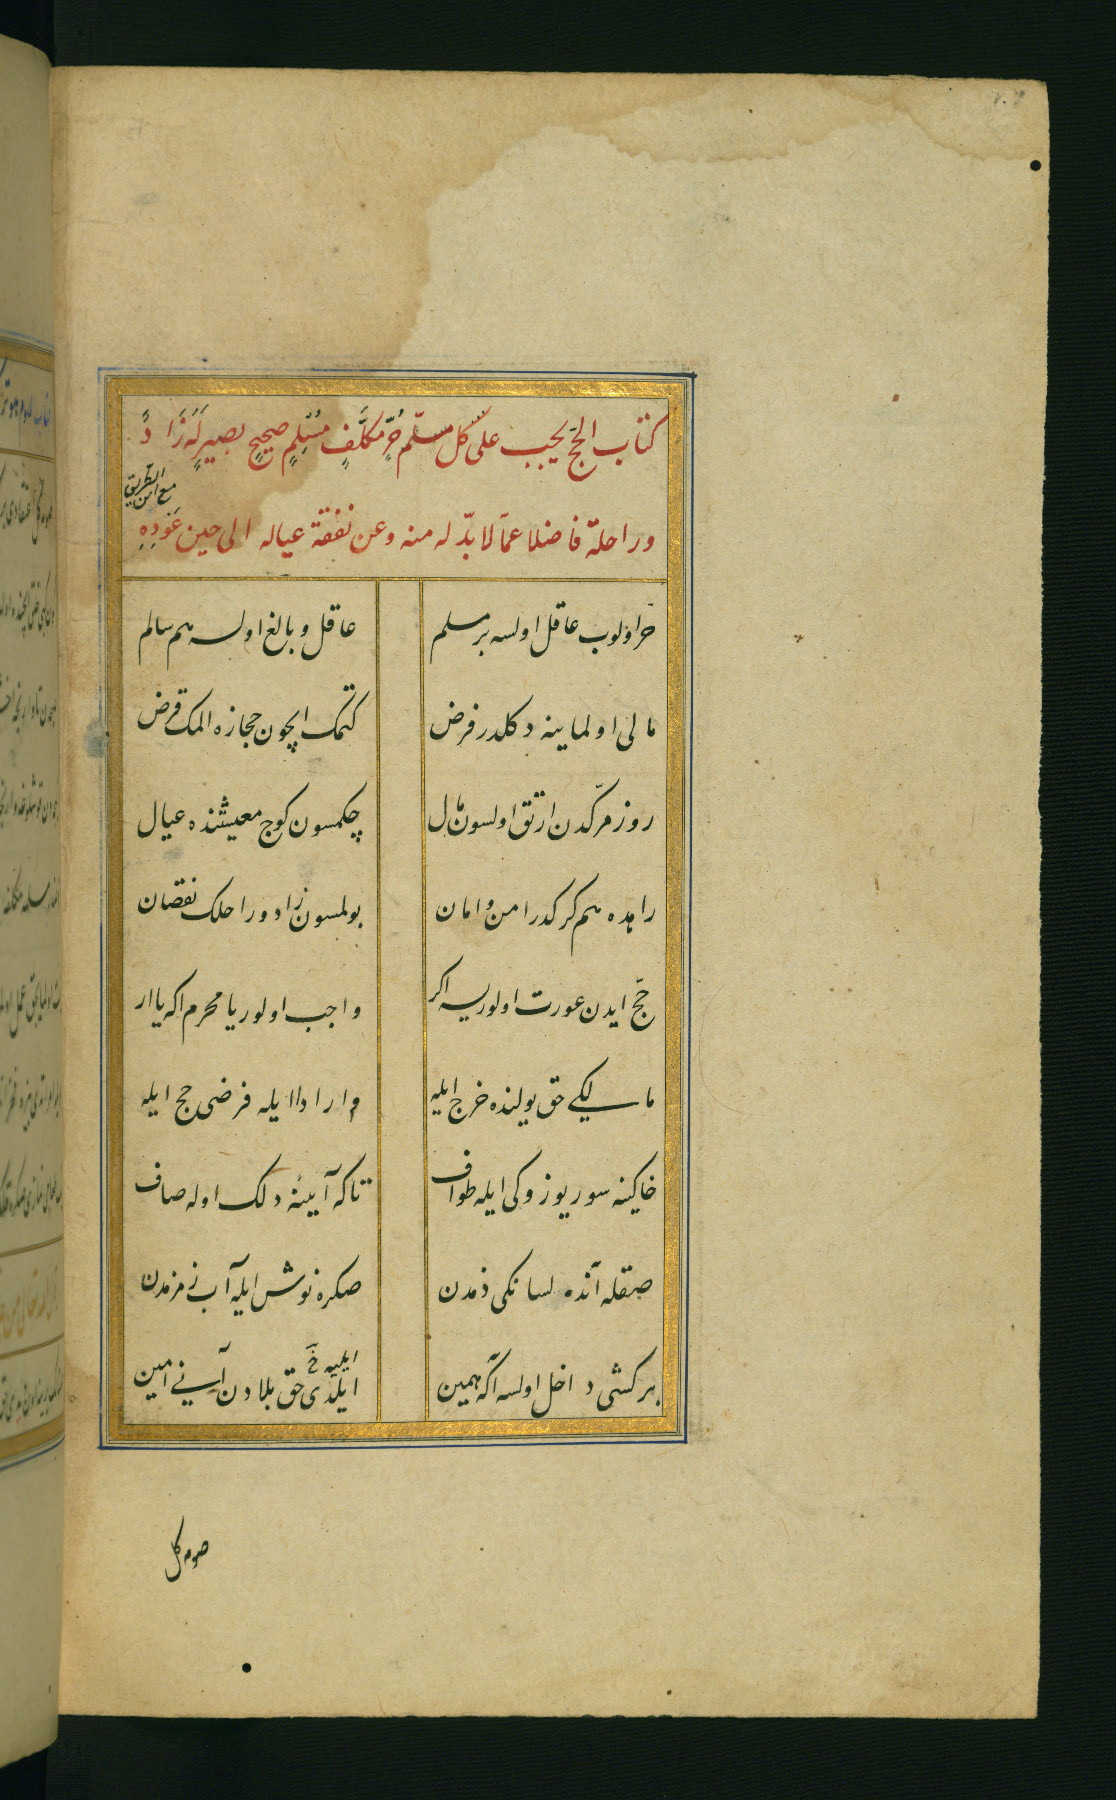 كتاب الحجّ يجب على كل مسلّم حُرٍّ مكلَّفٍ مُسْلِمٍ صحيحٍ بصيرٍ لَهُ زَادٌ
مع امن الطريق
وراحلة فاضلا عمّا لابدّ له منه وعن نفقة عياله الى حين عَوْدِهِ
حرّ اولوب عاقل اولسه بر مسلم عاقل و بالغ اولسه هم سالم
مالى اولماينه دكلدر فرض كتمك ايچون حجازه المك قرض
روز مرّه‌دن ارتق اولسون مال چكمسون كوج معيشنده عيال
راهده هم كركدر امن و امان بولمسون زاد و راحلك نقصان
حجّ ايدن عورت اولوريسه اكر واجب اولور يا محرم اكه يا ار
مالكى حق يولنده خرج ايله وار ادا ايله فرضى حج ايله
خاكينه سور يوزوكى ايله طواف تاكه آيينهٔ دلك اوله صاف
صقله آنده لسانكى ذمدن صكره نوش ايله آب زمزمدن
بر كشى داخل اولسه آكه همين ايلدى حق بلادن آنى امين
ايليه خ